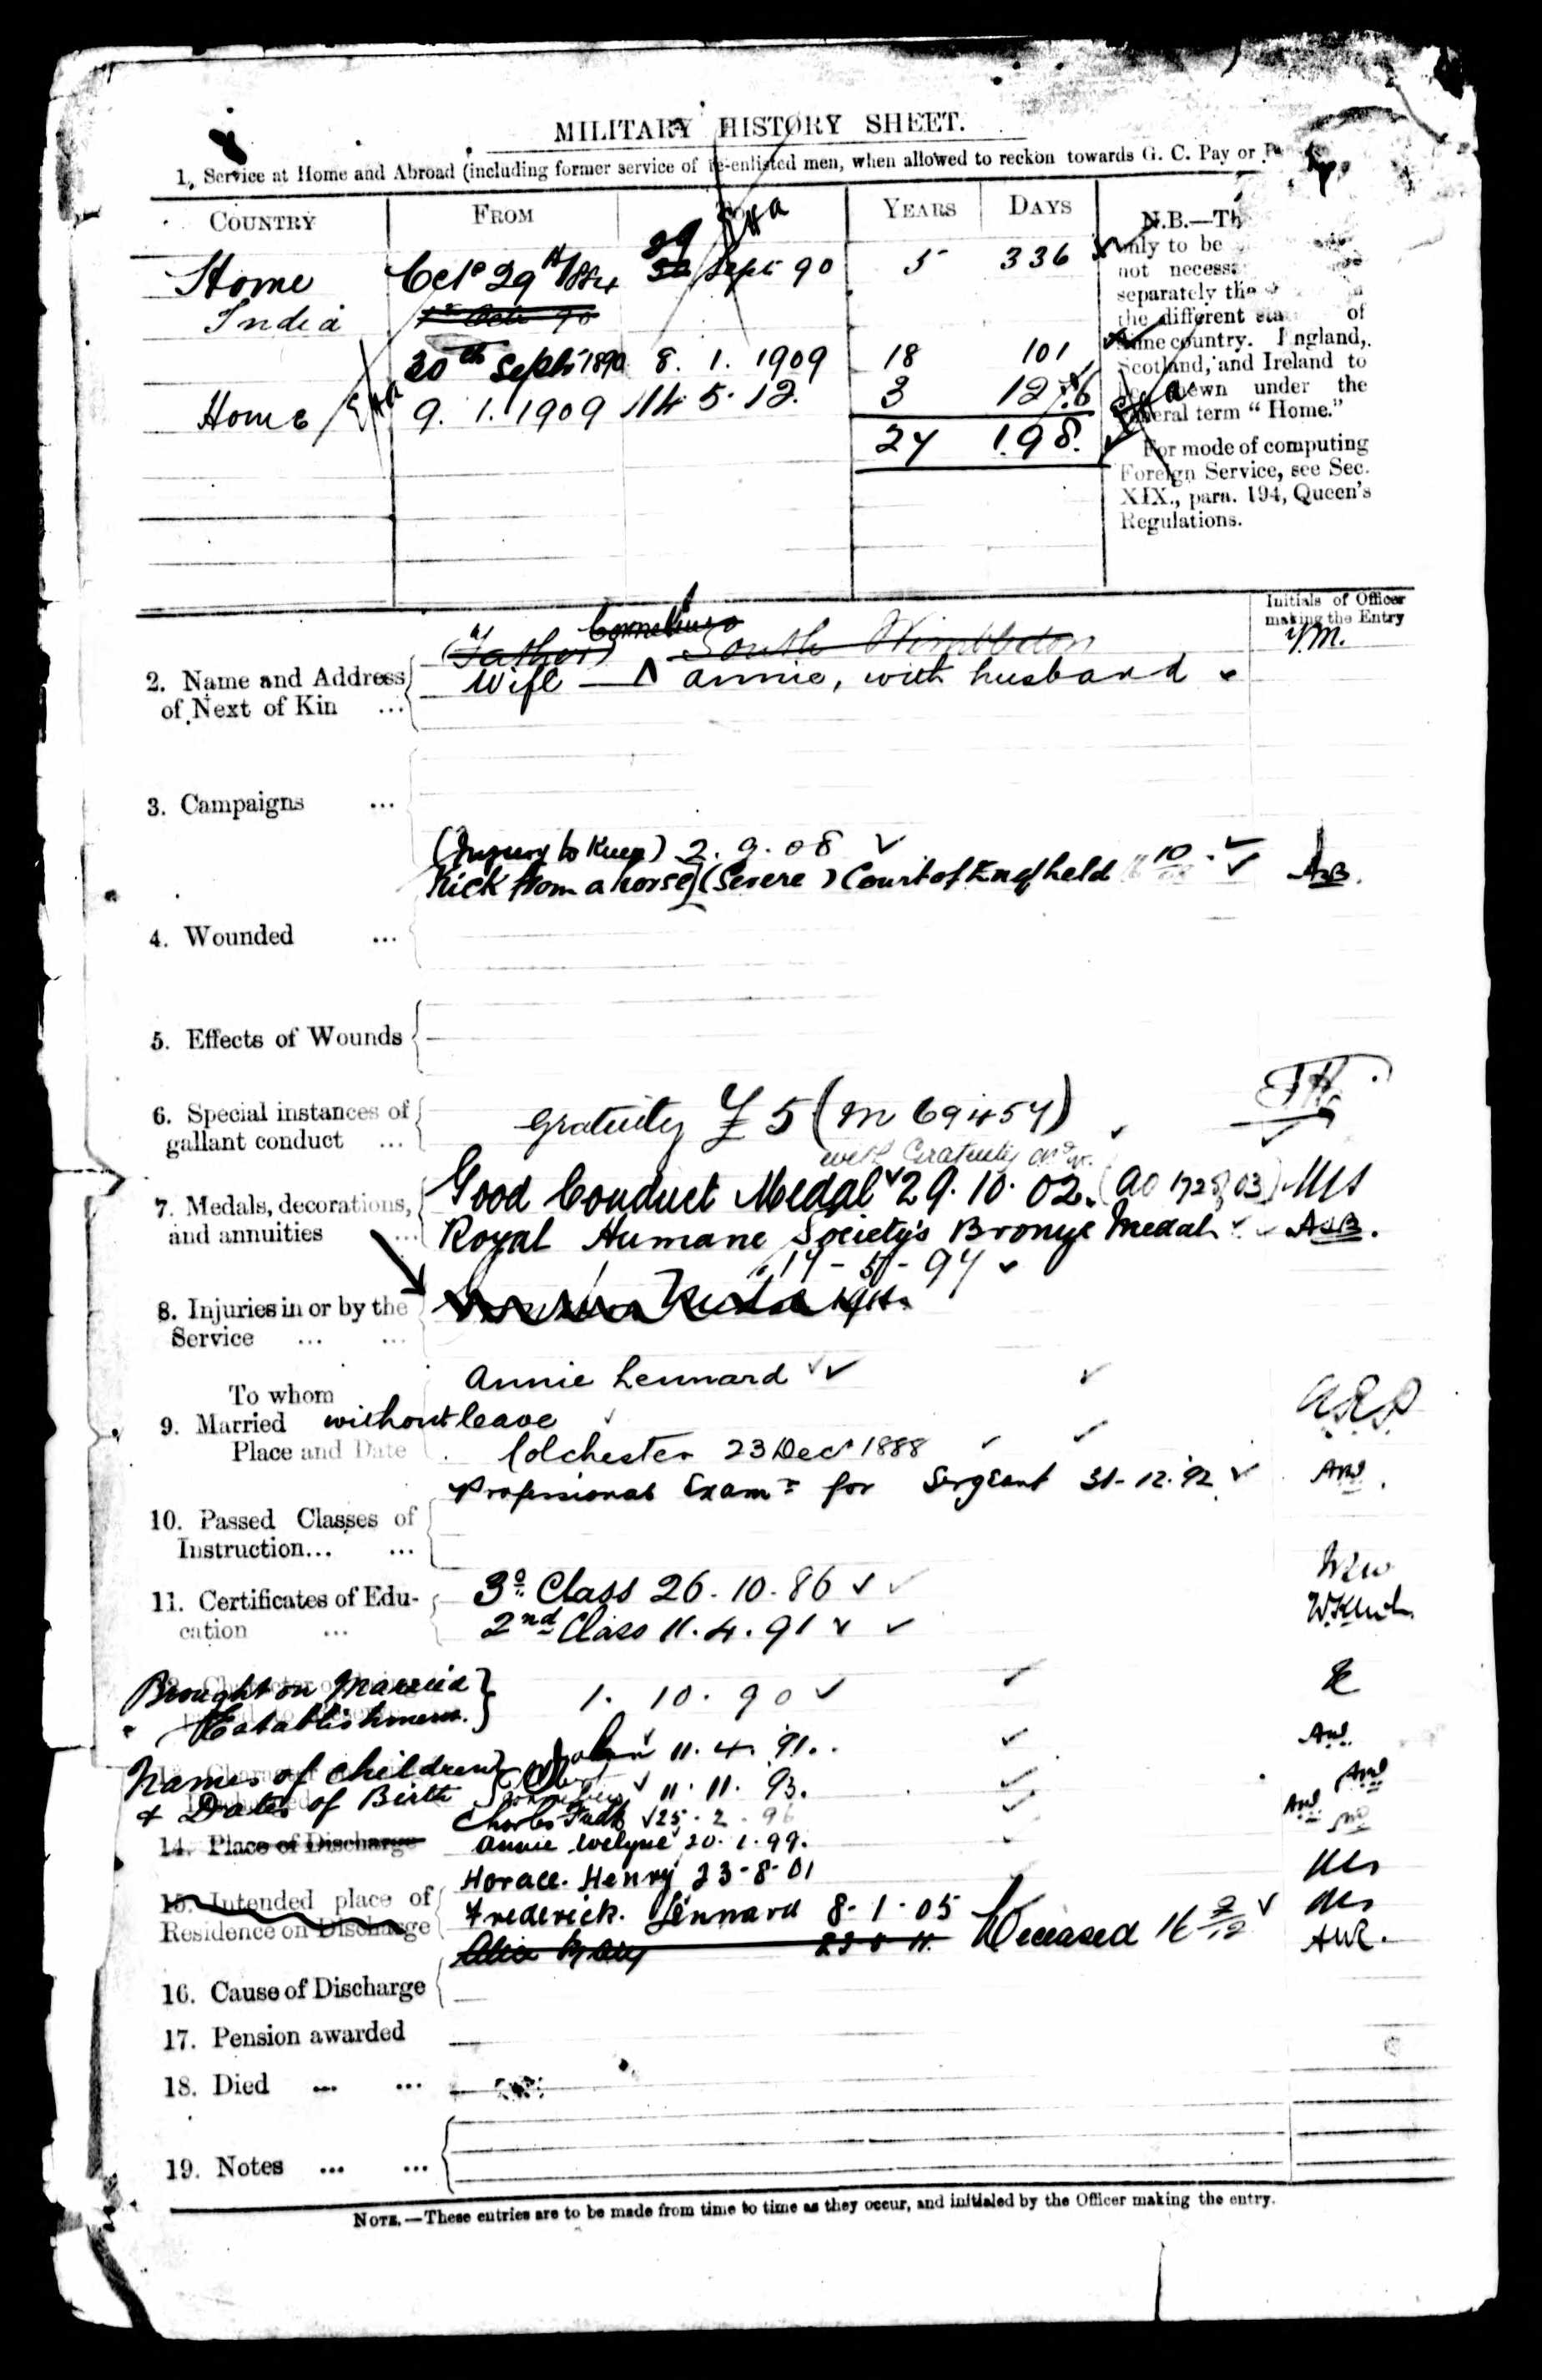 MILITARY HISTORY SHEET.
1. Service at Home and Abroad (including former service of re-enlisted men, when allowed to reckon towards G. C. Pay or
COUNTRY FROM TO YEARS DAYS
Home Octr 29th 1884 29 Sept 90 5 336
India 1st Octr 90
30th Sept 1890 8. 1. 1909 18 101
Home 9. 1. 1909 14. 5. 12. 3 126
27 198.
N.B.—Th
only to be
not necess
separately the
the different sta of
same country. England,
Scotland, and Ireland to
be shewn under the
general term "Home."
For mode of computing
Foreign Service, see Sec.
XIX., para. 194, Queen's
Regulations.
Initials of Officer
making the Entry
2. Name and Address
of Next of Kin ...
(Father) Cornelius South Wimbledon
Wife — Annie, with husband
3. Campaigns ...
(Injury to Knee) 2. 9. 08
Kick from a horse (Severe) Court of Enq held
4. Wounded ...
5. Effects of Wounds
6. Special instances of
gallant conduct ...
gratuity £5 (M 69457)
with Gratuity
7. Medals, decorations,
and annuities ...
Good Conduct Medal 29. 10. 02. (AO 1728/03)
Royal Humane Society's Bronze Medal
8. Injuries in or by the
Service ... ...
To whom
9. Married without leave
Place and Date
Annie Lennard
Colchester 23 Decr 1888
Professional Examn for Sergeant 31-12-92
10. Passed Classes of
Instruction... ...
11. Certificates of Edu-
cation ...
3rd Class 26. 10. 86
2nd Class 11. 4. 91
Brought on Married
Establishment. } 1. 10. 90
Names of Children
& Dates of Birth
John 11. 4. 91.
11. 11. 93.
Charles 25. 2. 96
14. Place of Discharge
Annie Evelyne 20. 1. 99.
Horace Henry 23-8-01
15. Intended place of
Residence on Discharge
Frederick Lennard 8-1-05
Alice Deceased
16. Cause of Discharge
17. Pension awarded
18. Died ... ...
19. Notes ... ...
NOTE.—These entries are to be made from time to time as they occur, and initialed by the Officer making the entry.